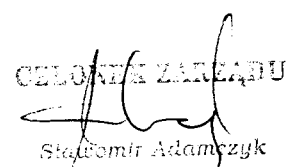 CZŁONEK ZARZĄDU
Sławomir Adamczyk